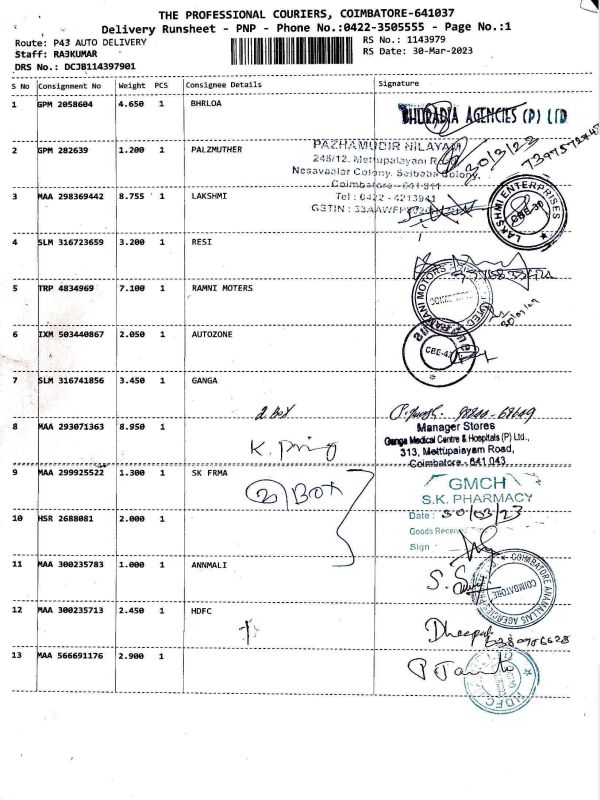 THE PROFESSIONAL COURIERS, COIMBATORE-641037
Delivery Runsheet - PNP - Phone No.:0422-3505555 - Page No.:1
Route: P43 AUTO DELIVERY
RS No.: 1143979
Staff: RAJKUMAR
RS Date: 30-Mar-2023
DRS No.: DCJB114397901
S No Consignment No Weight PCS Consignee Details Signature
1 GPM 2058604 4.650 1 BHRLOA
BHURADIA AGENCIES (P) LTD
2 GPM 282639 1.200 1 PALZMUTHER
PAZHAMUDIR NILAYAM
248/12, Mettupalayam
Nesavaalar Colony, Saibaba Colony,
Coimbatore - 641 011
Tel : 0422 - 4213941
GSTIN :
30/3/23
3 MAA 298369442 8.755 1 LAKSHMI
LAKSHMI ENTERPRISES
CBE-30
4 SLM 316723659 3.200 1 RESI
5 TRP 4834969 7.100 1 RAMNI MOTERS
RAMANI MOTORS
6 IXM 503440867 2.050 1 AUTOZONE
CBE-43
7 SLM 316741856 3.450 1 GANGA
2 Box
98844-68649
8 MAA 293071363 8.950 1
Manager Stores
Ganga Medical Centre & Hospitals (P) Ltd.,
313, Mettupalayam Road,
Coimbatore - 641 043.
9 MAA 299925522 1.300 1 SK FRMA
2 Box
GMCH
S.K. PHARMACY
Date : 30/03/23
10 HSR 2688081 2.000 1
Goods Received
Sign
11 MAA 300235783 1.000 1 ANNMALI
COIMBATORE ANAMALLAIS AGENCIES
COIMBATORE
12 MAA 300235713 2.450 1 HDFC
Dheepak
13 MAA 566691176 2.900 1
HDFC